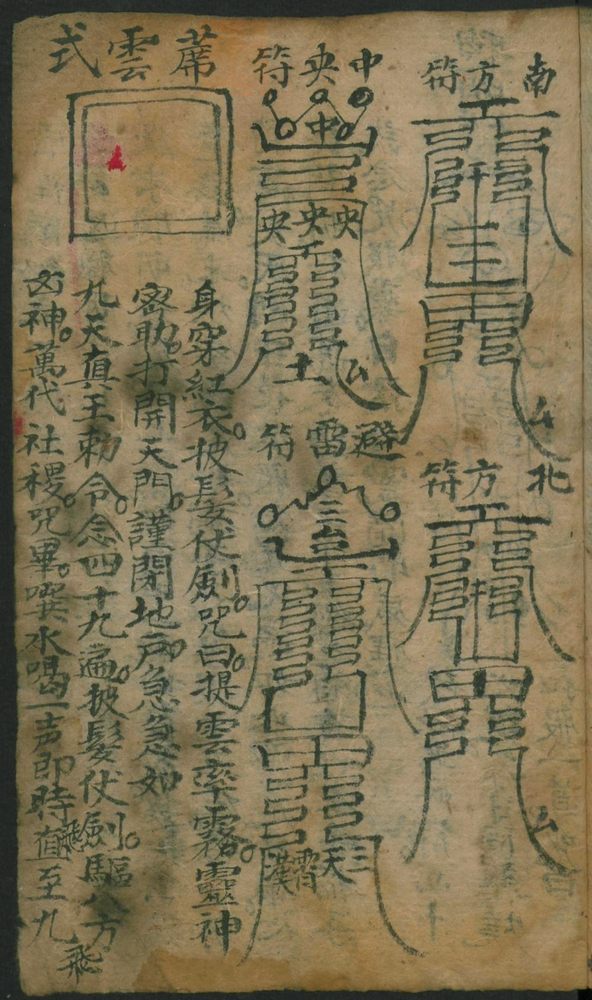 南方符
北方符
中央符
中
央央央
土
避雷符
三台
三天
霄漢
蓆雲式
身穿紅衣。披髮仗劍。咒曰。提雲率霧。靈神
密助。打開天門。謹閉地户。急急如
九天真王勅令。念四十九遍。披髮仗劍。驅八方
凶神。萬代社稷。咒畢。噀水喝一声即時飛直至九
飛